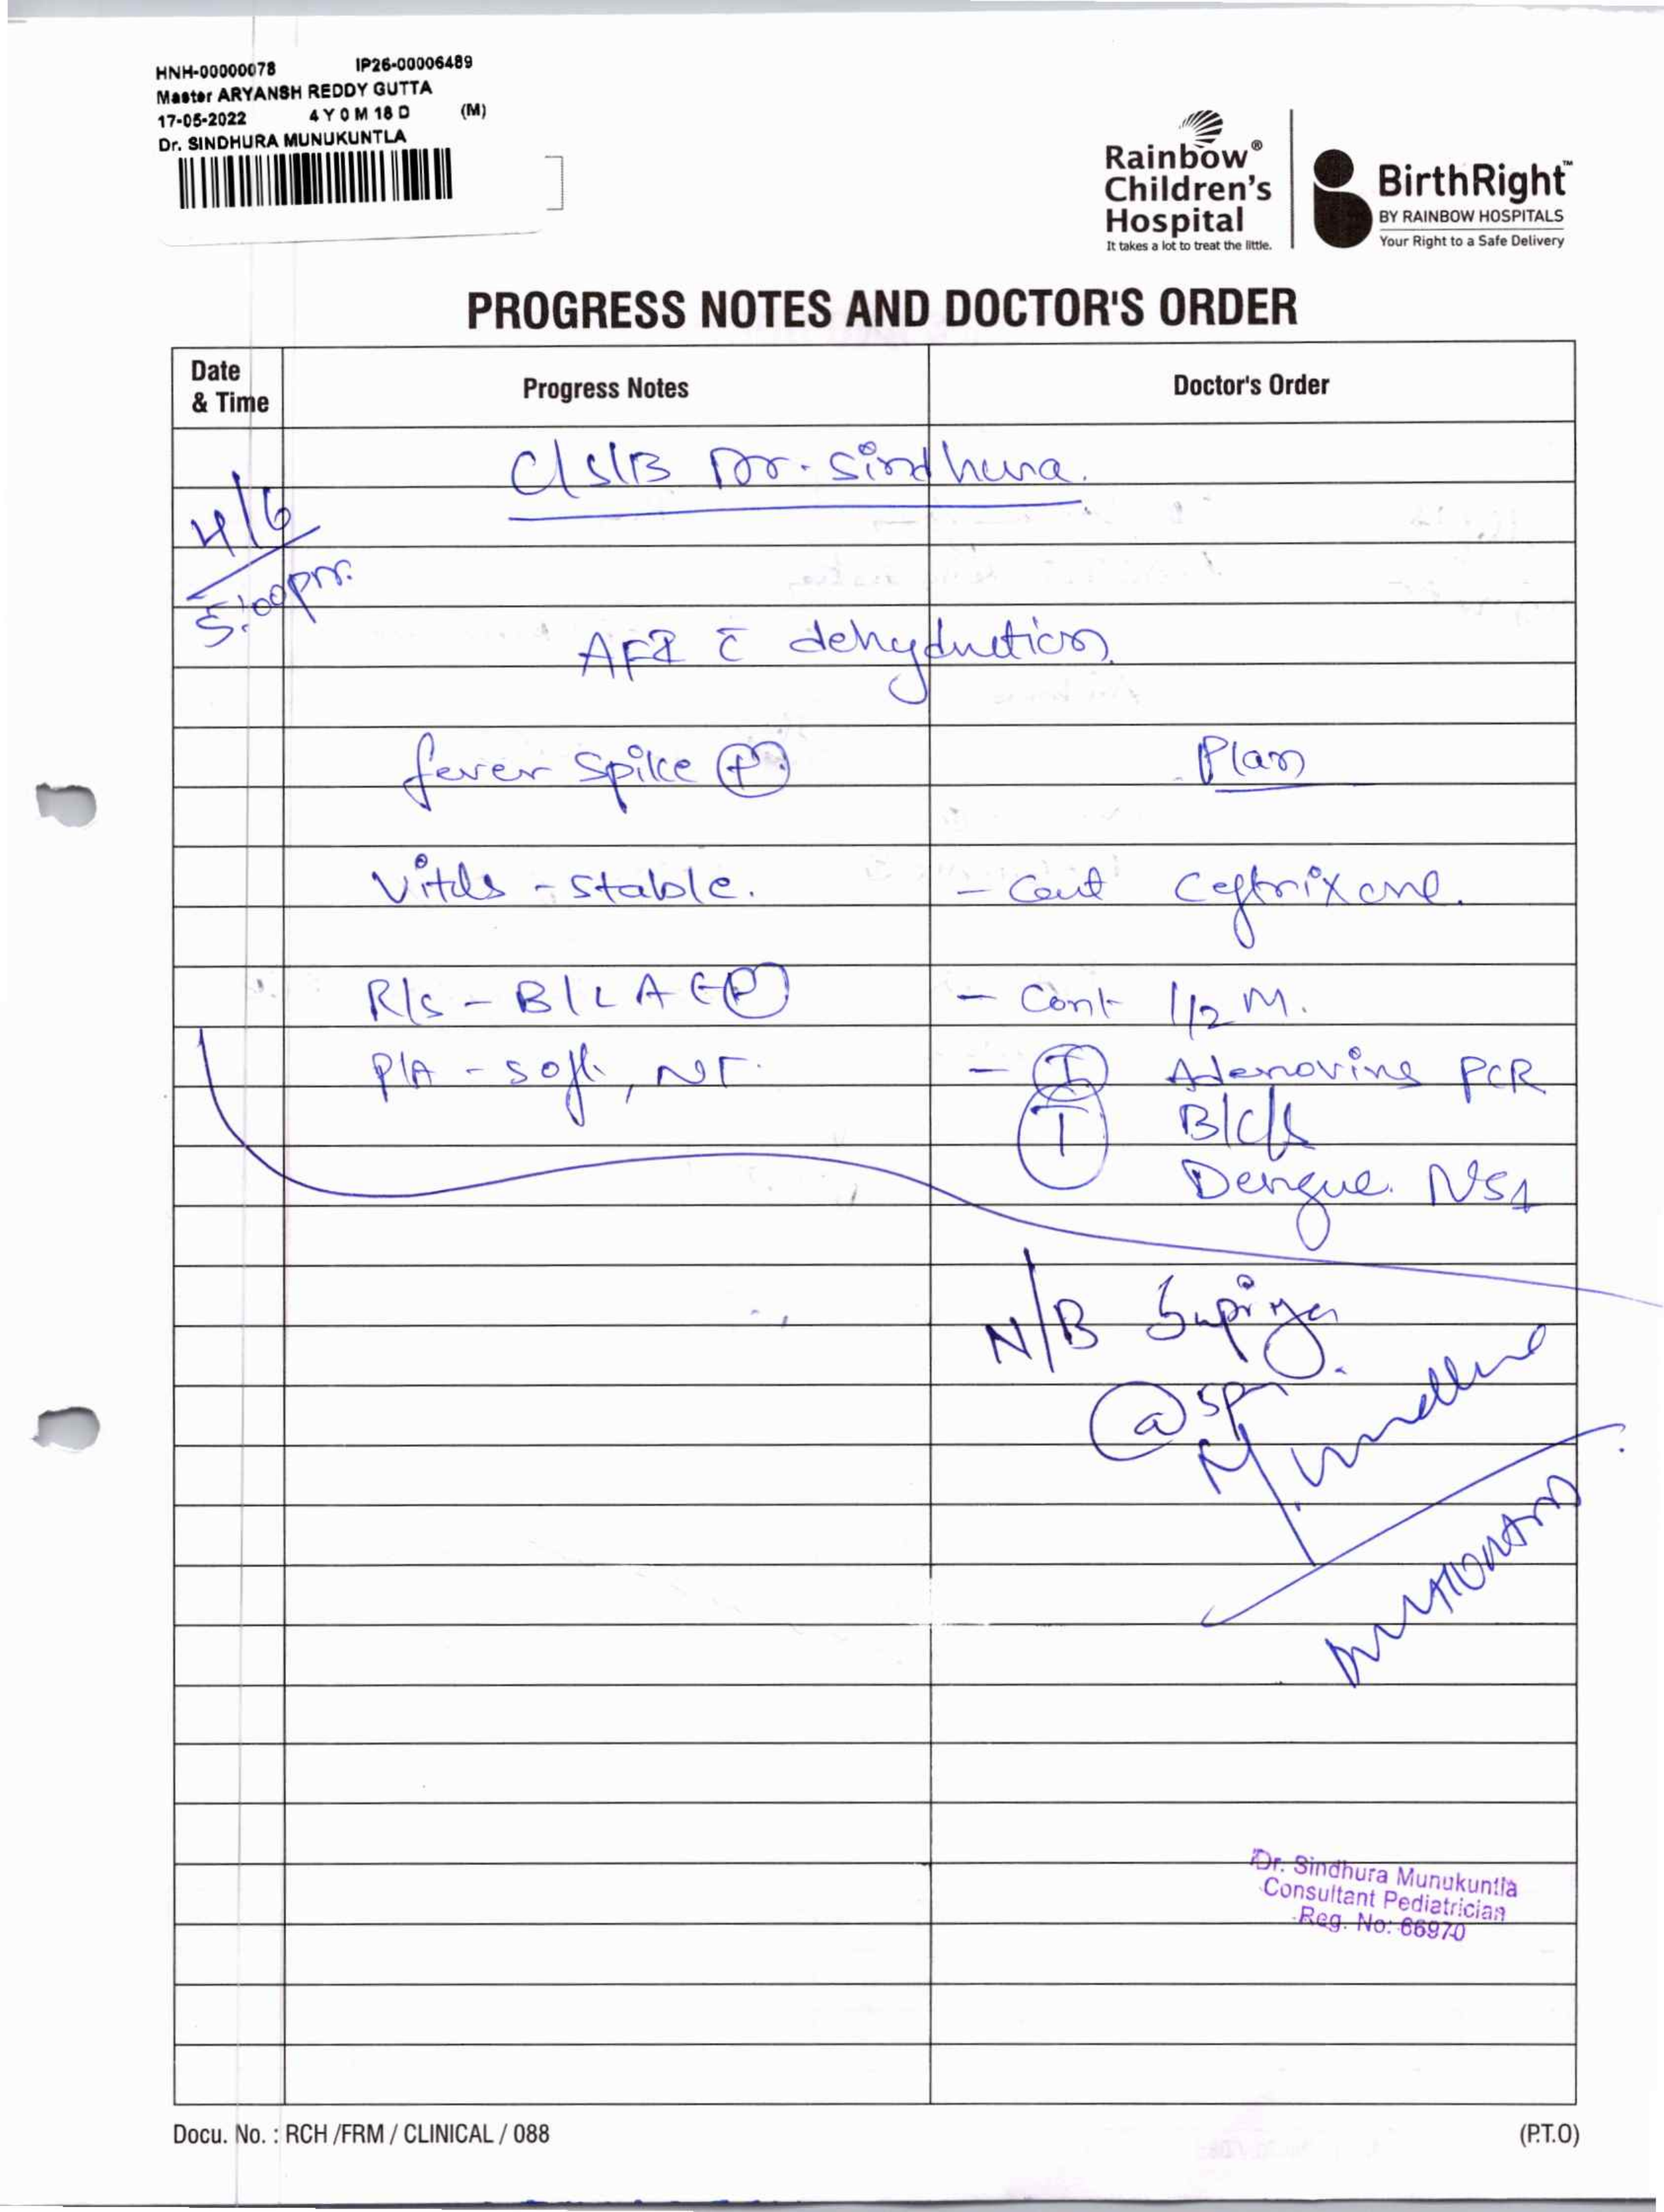 HNH-00000078 IP26-00006489
Master ARYANSH REDDY GUTTA
17-05-2022 4 Y 0 M 18 D (M)
Dr. SINDHURA MUNUKUNTLA
Rainbow®
Children's
Hospital
It takes a lot to treat the little.
BirthRight™
BY RAINBOW HOSPITALS
Your Right to a Safe Delivery
PROGRESS NOTES AND DOCTOR'S ORDER
Date
& Time
Progress Notes
Doctor's Order
C/S/B Dr. Sindhura.
4/6
5:00pm.
AFI c̄ dehydration
fever spike (+)
Plan
Vitals - stable.
- Cont Ceftrixone.
R/S - B/L AE(P)
- Cont 1/2 M.
P/A - soft, NT.
- (I) Adenovirus PCR
(T) B/c/s
Dengue NS1
N/B Supriya
@ 5pm
Dr. Sindhura Munukuntla
Consultant Pediatrician
Reg. No: 66970
Docu. No. : RCH /FRM / CLINICAL / 088
(P.T.O)